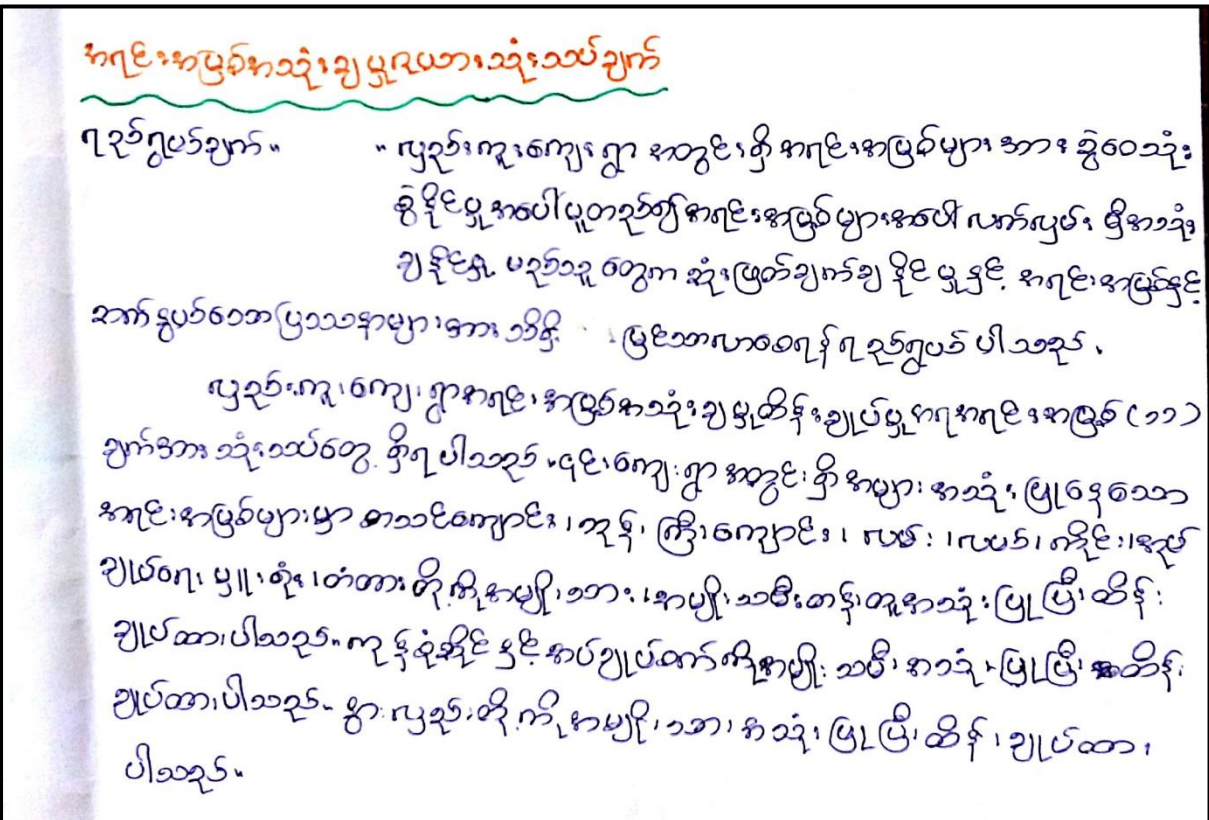 အရင်းအမြစ်အသုံးချမှုဇယားသုံးသပ်ချက်
ရည်ရွယ်ချက်။ ။ လှည်းကူးကျေးရွာ အတွင်းရှိ အရင်းအမြစ်များ အား ခွဲဝေသုံး
စွဲနိုင်မှုအပေါ်မူတည်၍အရင်းအမြစ်များအပေါ် လက်လှမ်း မှီအသုံး
ချနိုင်မှု မည်သူတွေက ဆုံးဖြတ်ချက်ချ နိုင်မှုနှင့် အရင်းအမြစ်နှင့်
ဆက်နွယ်သောပြဿနာများအား သိရှိ မြင်သာလာစေရန်ရည်ရွယ်ပါသည်။
လှည်းကူးကျေးရွာအရင်းအမြစ်အသုံးချမှုထိန်းချုပ်မှုအရအရင်းအမြစ်(၁၁)
ချက်အား သုံးသပ်တွေ့ရှိရပါသည်။၎င်းကျေးရွာ အတွင်းရှိ အများအသုံးပြုနေသော
အရင်းအမြစ်များမှာ စာသင်ကျောင်း၊ဘုန်းကြီးကျောင်း၊ လမ်း၊လယ်၊ကိုင်း၊အုပ်
ချုပ်ရေးမှူးရုံး၊တံတားတို့ကိုအမျိုးသား၊အမျိုးသမီးတန်းတူအသုံးပြုပြီးထိန်း
ချုပ်ထားပါသည်။ကုန်စုံဆိုင်နှင့်အပ်ချုပ်စက်ကိုအမျိုးသမီးအသုံးပြုပြီးထိန်း
ချုပ်ထားပါသည်။ နွားလှည်းတို့ကိုအမျိုးသားအသုံးပြုပြီးထိန်းချုပ်ထား
ပါသည်။